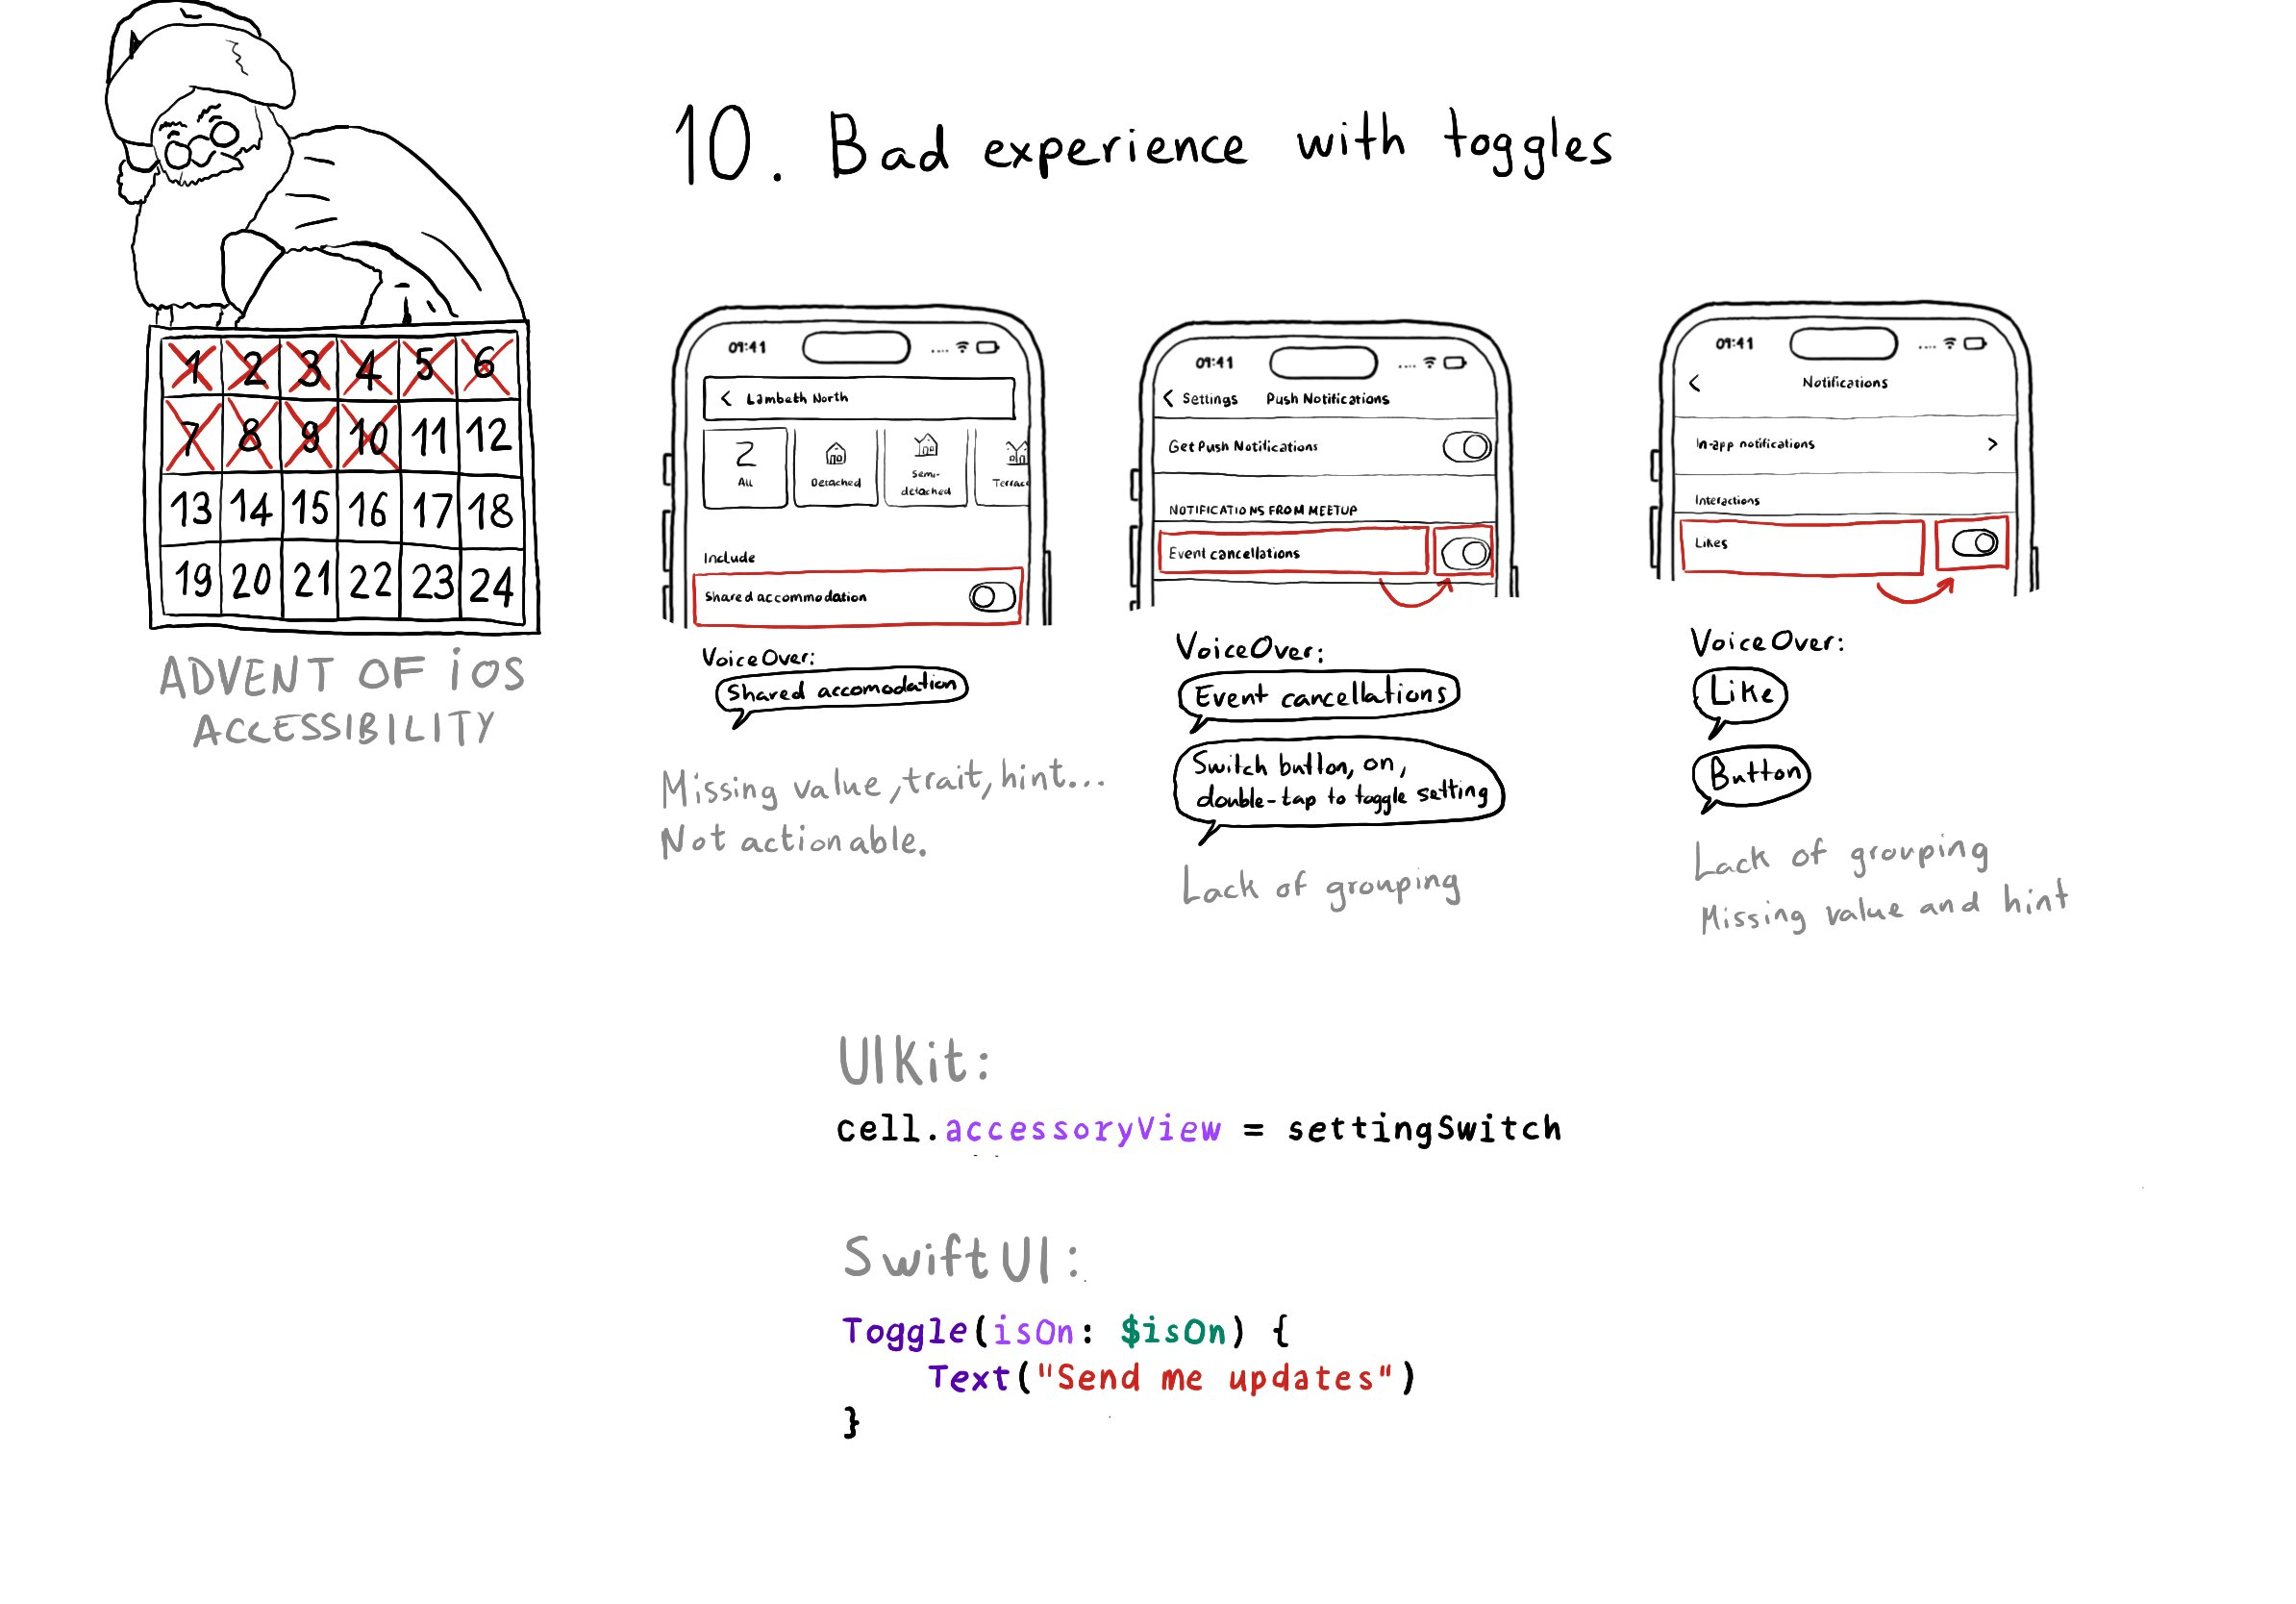 10. Bad experience with toggles
1 2 3 4 5 6
7 8 9 10 11 12
13 14 15 16 17 18
19 20 21 22 23 24
ADVENT OF iOS
ACCESSIBILITY
09:41
< Lambeth North
2
All
Detached
Semi-
detached
Terrac
Include
Shared accommodation
VoiceOver:
Shared accomodation
Missing value, trait, hint...
Not actionable.
09:41
< Settings Push Notifications
Get Push Notifications
NOTIFICATIONS FROM MEETUP
Event cancellations
VoiceOver:
Event cancellations
Switch button, on,
double-tap to toggle setting
Lack of grouping
09:41
< Notifications
In-app notifications >
Interactions
Likes
VoiceOver:
Like
Button
Lack of grouping
Missing value and hint
UIKit:
cell.accessoryView = settingSwitch
SwiftUI:
Toggle(isOn: $isOn) {
Text("Send me updates")
}